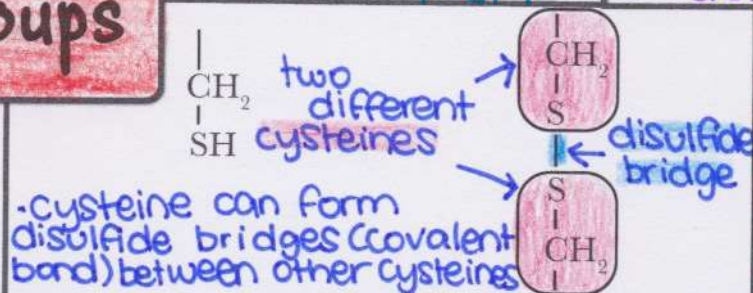 oups
CH₂
SH
two
different
cysteines
CH₂
S
disulfide
bridge
S
CH₂
•cysteine can form
disulfide bridges (covalent
bond) between other cysteines